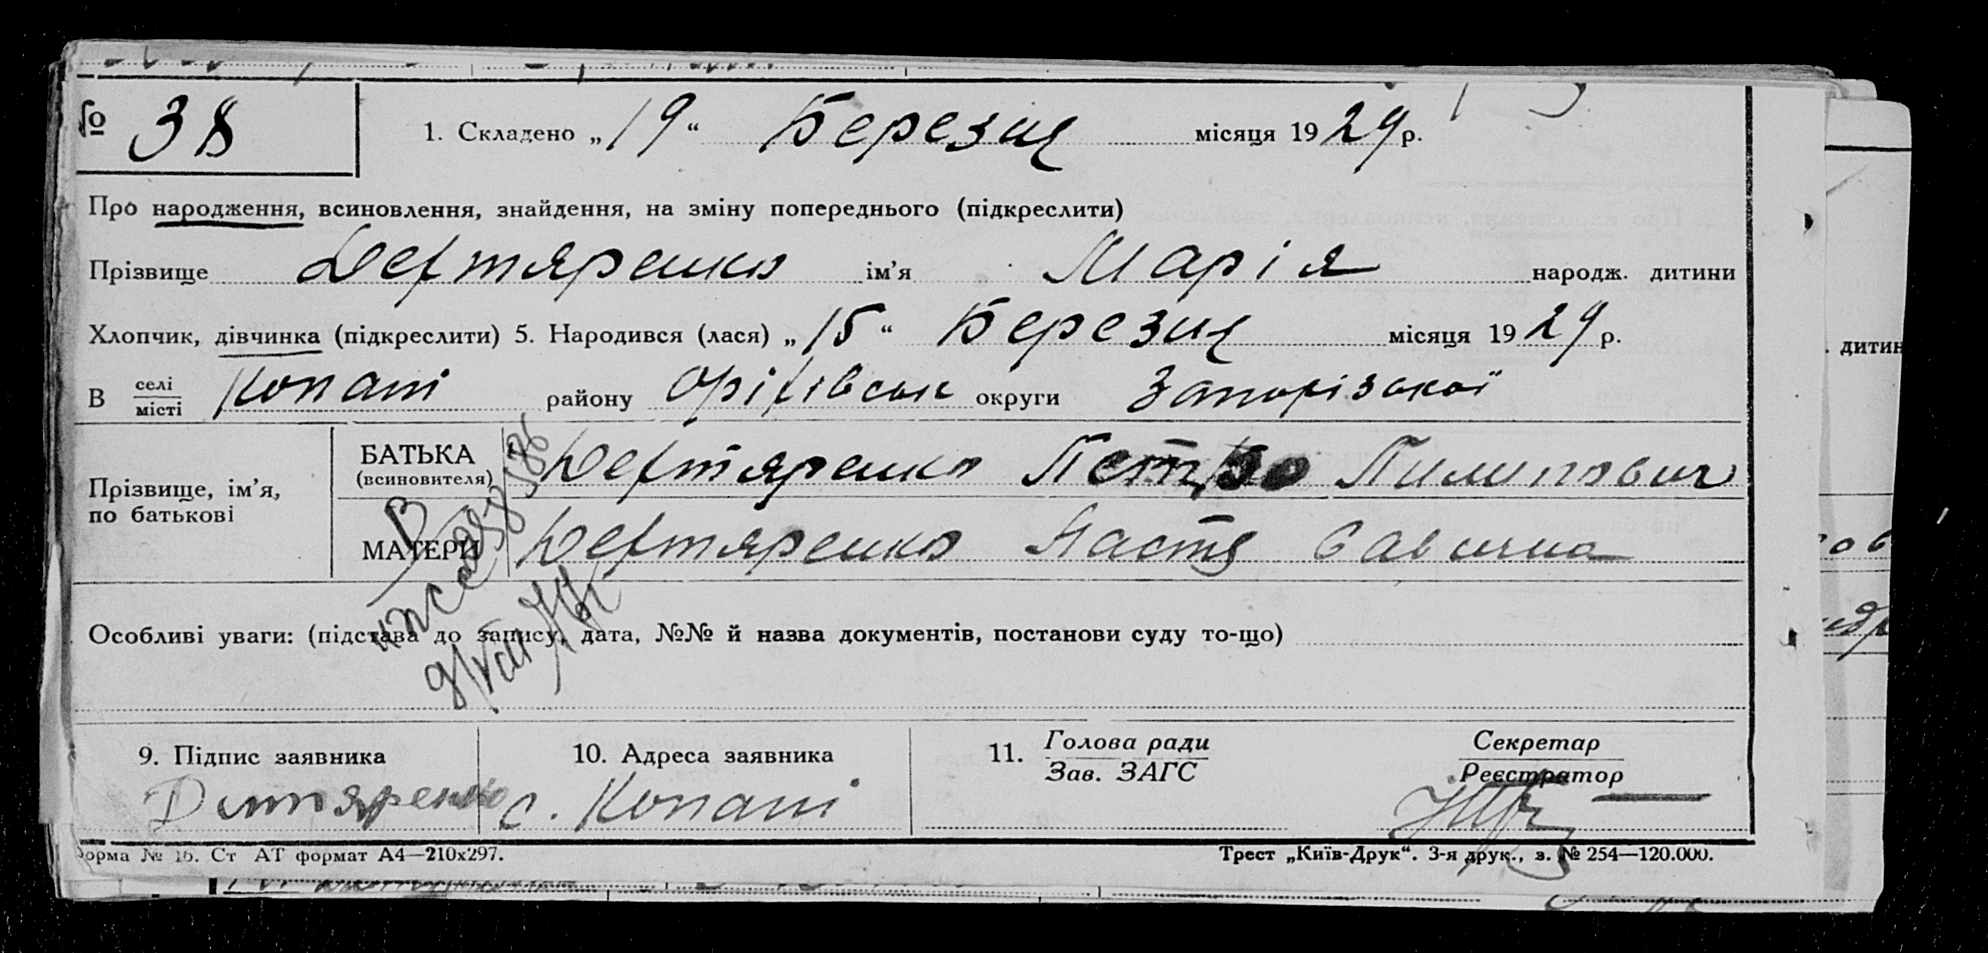 № 38
1. Складено „19“ Березня місяця 1929 р.
Про народження, всиновлення, знайдення, на зміну попереднього (підкреслити)
Прізвище Дегтяренко ім’я Марія народж. дитини
Хлопчик, дівчинка (підкреслити) 5. Народився (лася) „15“ Березня місяця 1929 р.
В селі/місті Копані району Оріхівськ округи Запорізької
Прізвище, ім’я, по батькові
БАТЬКА (всиновителя) Дегтяренко Петро Пилипович
МАТЕРИ Дегтяренко Настя Савична
Особливі уваги: (підстава до запису, дата, №№ й назва документів, постанови суду то-що)
9. Підпис заявника
10. Адреса заявника
11. Голова ради / Зав. ЗАГС
Секретар / Реєстратор
Дехтяренко с. Копані
Форма № 16. Ст АТ формат А4—210х297.
Трест „Київ-Друк“. 3-я друк., з. № 254—120.000.
дитин